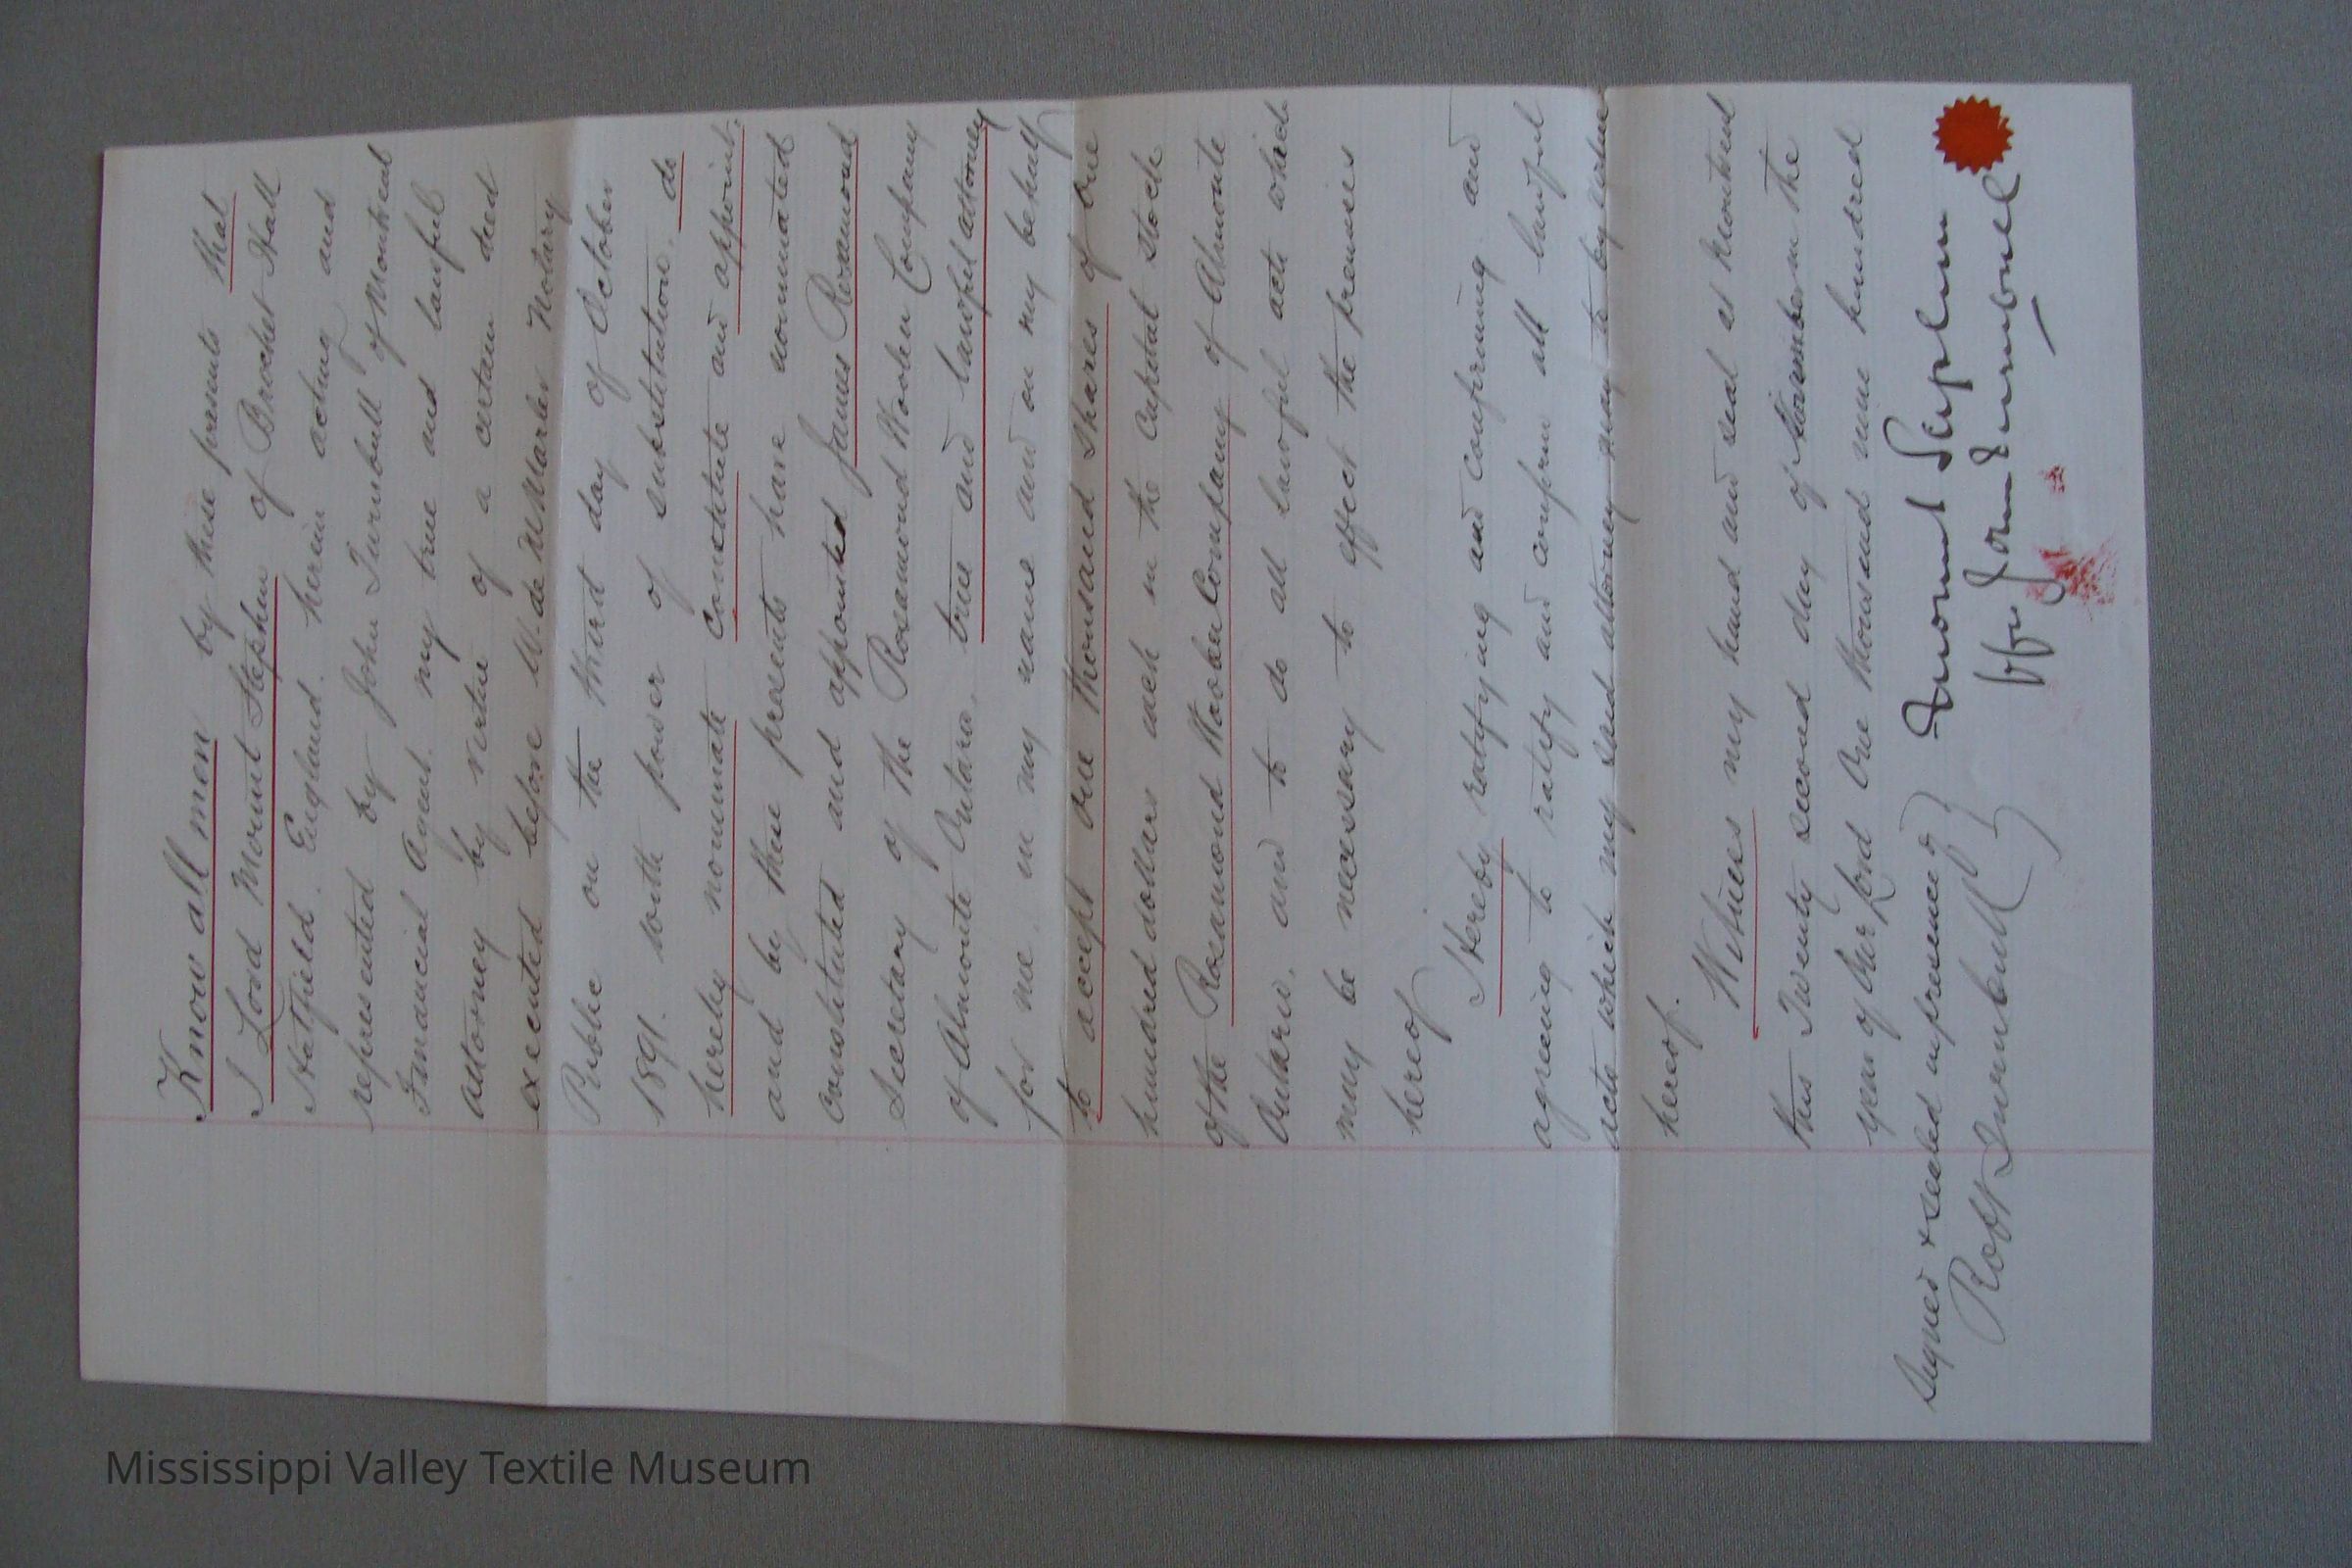 Know all men by these presents that
I Lord Mount Stephen of Brocket Hall
Hatfield. England. herein acting and
represented by John Turnbull of Montreal
Financial Agent. my true and lawful
attorney by virtue of a certain deed
executed before W. de M. Marler Notary
Public on the third day of October
1891. with power of substitution. do
hereby nominate constitute and appoint.
and by these presents have nominated
constituted and appointed James Rosamond
Secretary of the Rosamond Woolen Company
of Almonte Ontario, true and lawful attorney
for me, in my name and on my behalf
to accept one thousand shares of One
hundred dollars each in the Capital stock
of the Rosamond Woolen Company of Almonte
Ontario, and to do all lawful acts which
may be necessary to effect the premises
hereof
Hereby ratifying and confirming and
agreeing to ratify and confirm all lawful
acts which my said attorney may do by virtue
hereof.
Witness my hand and seal at Montreal
this Twenty second day of November in the
year of Our Lord One thousand nine hundred
Signed & sealed in presence of
Mount Stephen
Robt Turnbull
by John Turnbull
Mississippi Valley Textile Museum